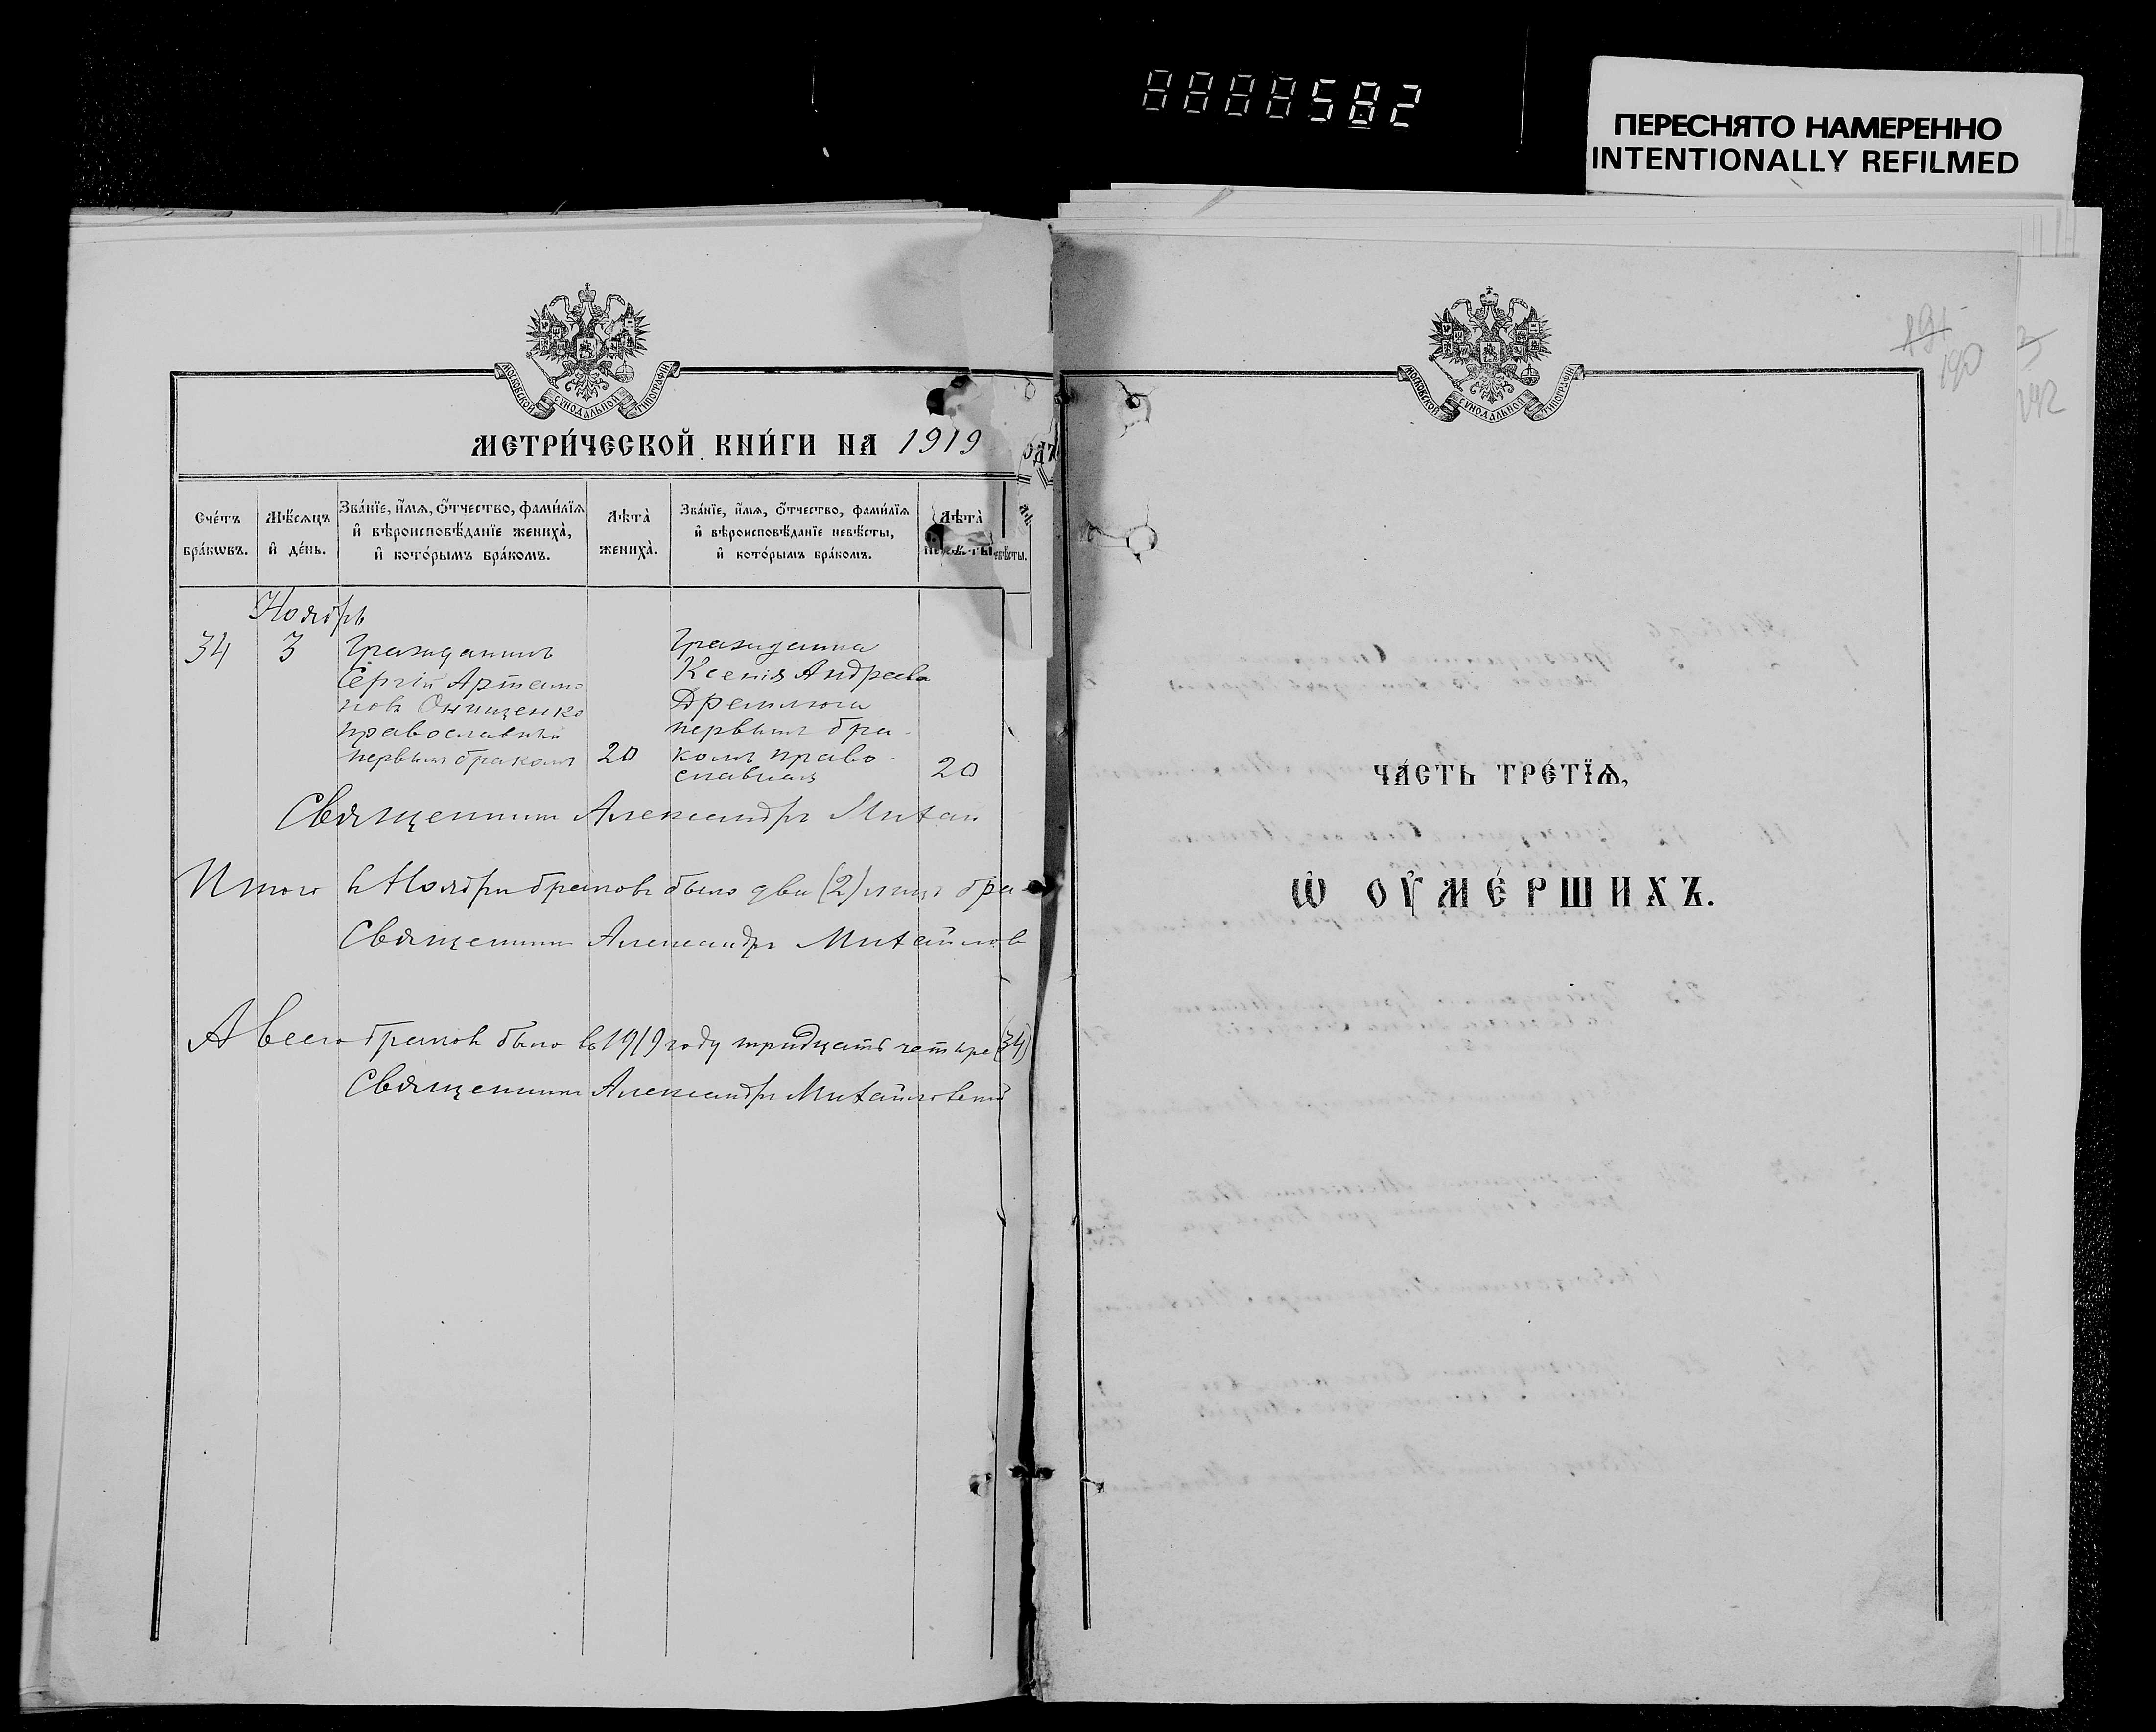 0000582
ПЕРЕСНЯТО НАМЕРЕННО
INTENTIONALLY REFILMED
МОСКОВСКОЙ СѴНОДАЛЬНОЙ ТИПОГРАФІИ
МЕТРИ́ЧЕСКОЙ КНИ́ГИ НА 1919
Сче́тъ бра́кѡвъ.
Мѣ́сѧцъ и҆ де́нь.
Зва́нїе, и҆́мѧ, ѻ҆́тчество, фами́лїѧ
и҆ вѣроисповѣ́данїе жениха̀,
и҆ кото́рымъ бра́комъ.
Лѣта̀ жениха̀.
Зва́нїе, и҆́мѧ, ѻ҆́тчество, фами́лїѧ
и҆ вѣроисповѣ́данїе невѣ́сты,
и҆ кото́рымъ бра́комъ.
Лѣта̀
Ноябрь
34
3
Гражданинъ
Сергій Артамо
новъ Онищенко
православный
первымъ бракомъ
20
Гражданка
Ксенія Андреева
Дремлюга
первымъ бра-
комъ право-
славная
20
Священникъ Александръ Михай
Итого въ Ноябрѣ браковъ было два (2)
Священникъ Александръ Михайлов
А всего браковъ было въ 1919 году тридцать четыре (34)
Священникъ Александръ Михайловскій
МОСКОВСКОЙ СѴНОДАЛЬНОЙ ТИПОГРАФІИ
191
190
192
ЧА́СТЬ ТРЕ́ТЇѦ,
Ѡ҆ ОУ҆МЕ́РШИХЪ.